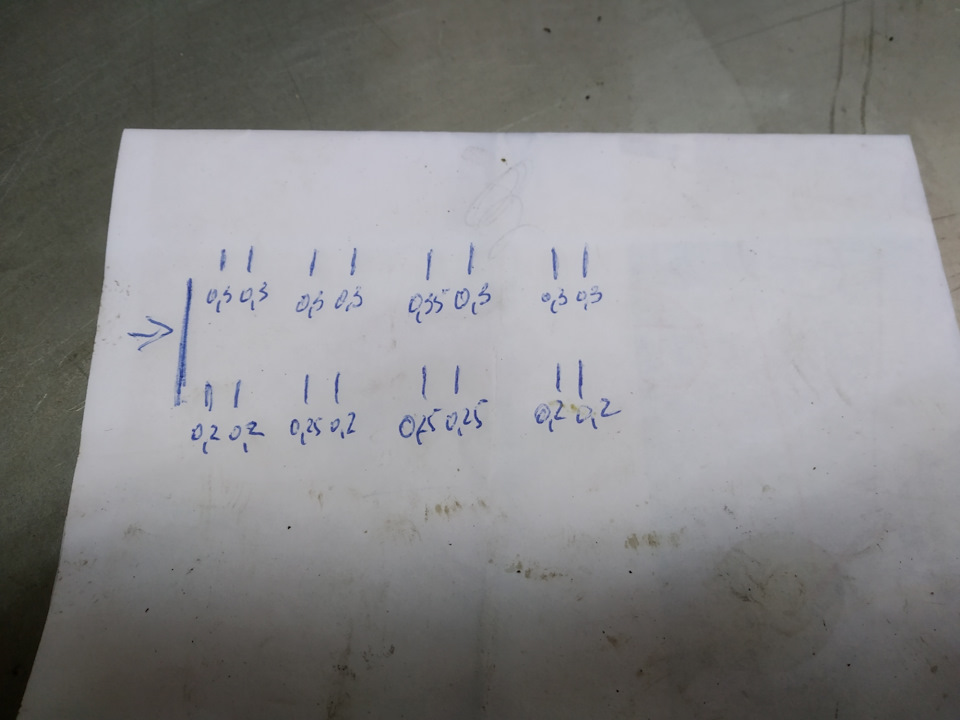 0,3 0,3 0,3 0,3 0,35 0,3 0,3 0,3
0,2 0,2 0,25 0,2 0,25 0,25 0,2 0,2